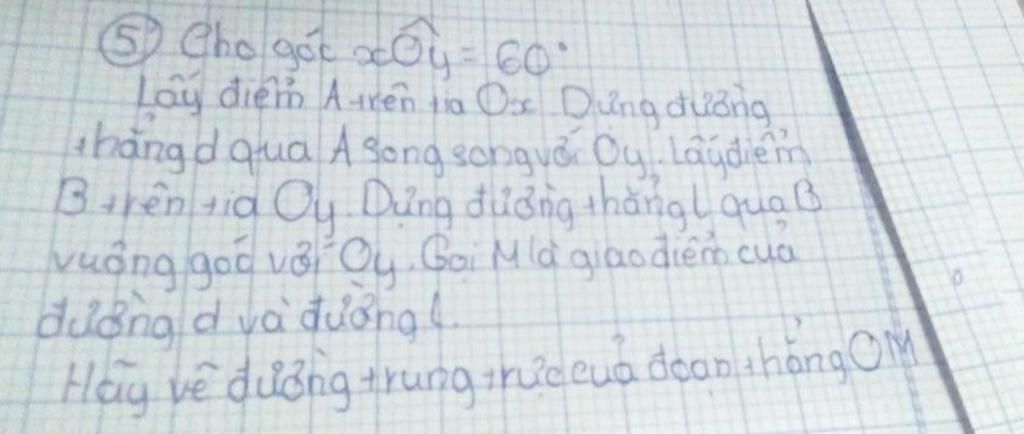 ⑤ Cho góc xÔy = 60°
Lấy điểm A trên tia Ox Dựng đường
thẳng d qua A song song với Oy. Lấy điểm
B trên tia Oy. Dựng đường thẳng l qua B
vuông góc với Oy. Gọi M là giao điểm của
đường d và đường l.
Hãy vẽ đường trung trực của đoạn thẳng OM